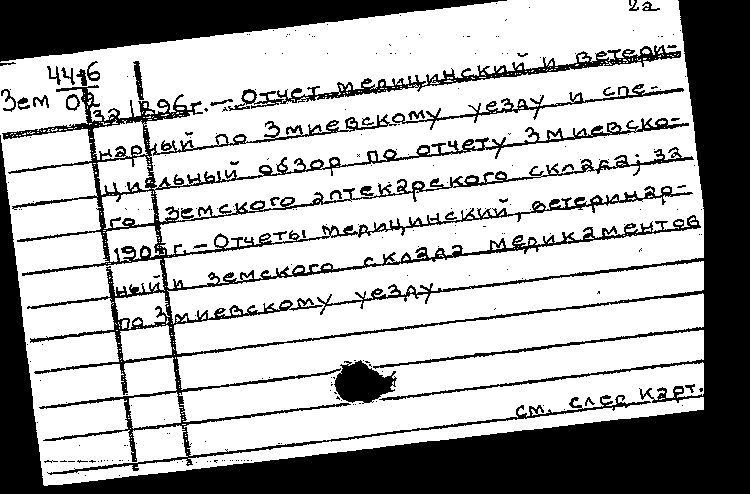 2а
44-6
Зем 02
за 1896г. — Отчет медицинский и ветери-
нарный по Змиевскому уезду и спе-
циальный обзор по отчету Змиевско-
го земского аптекарского склада; за
1905г. — Отчеты медицинский, ветеринар-
ный и земского склада медикаментов
по Змиевскому уезду.
см. след карт.